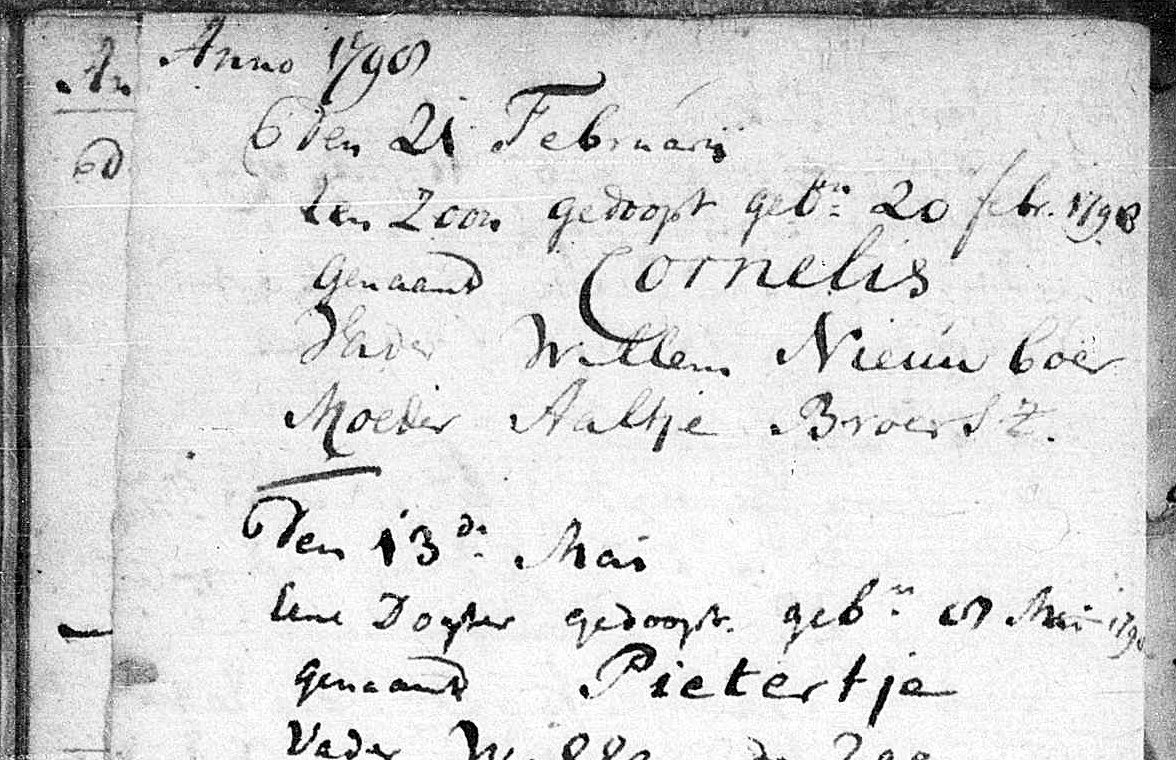 An
Anno 1798
d
Den 21 Februarij
Een Zoon gedoopt geb:n 20 febr. 1798
Genaamd Cornelis
Vader Willem Nieuwboer
Moeder Aaltje Broers Z.
Den 13de Mai
Eene Dogter gedoopt. geb:n Mai 179
genaamd Pietertje
Vader de